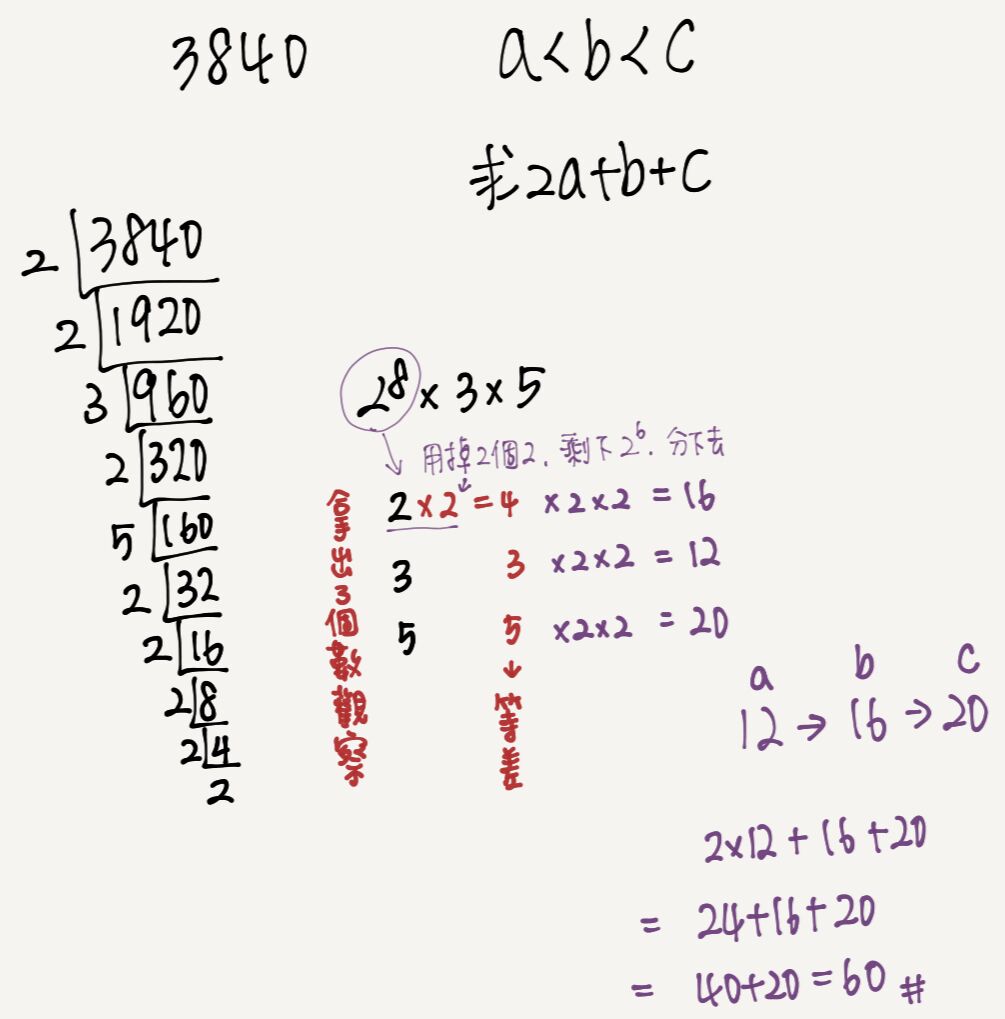 3840
a<b<c
求2a+b+c
2 3840
2 1920
3 960
2 320
5 160
2 32
2 16
2 8
2 4
2
2⁸×3×5
用掉2個2.剩下2⁶.分下去
2×2=4 ×2×2 =16
3 3 ×2×2 =12
5 5 ×2×2 =20
拿出3個數觀察
↓等差
a b c
12→16→20
2×12+16+20
= 24+16+20
= 40+20=60 #